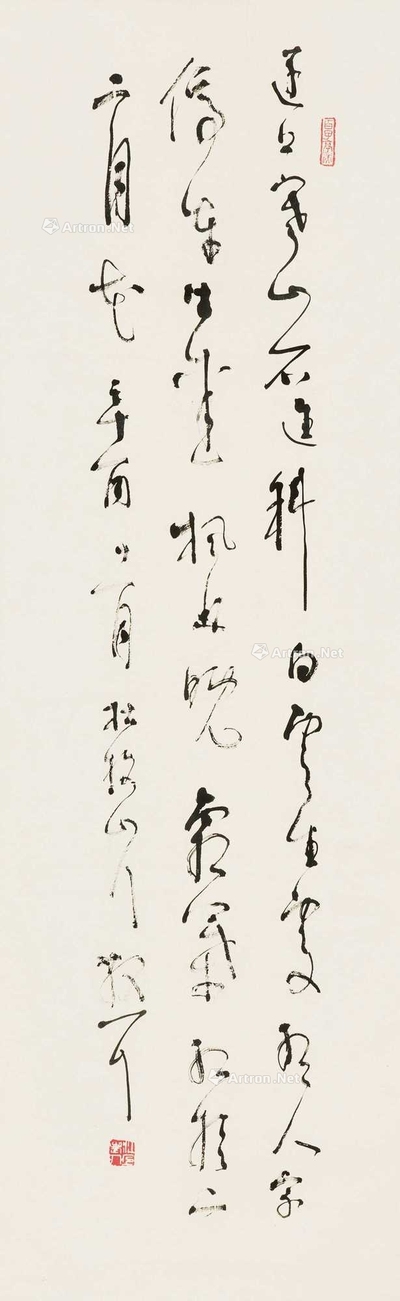 遠上寒山石徑斜 白雲生處有人家
停車坐愛楓林晚 霜葉紅於二
二月花 辛酉 月 杜牧山行 散耳
Artron.Net
Artron.Net
Artron.Net